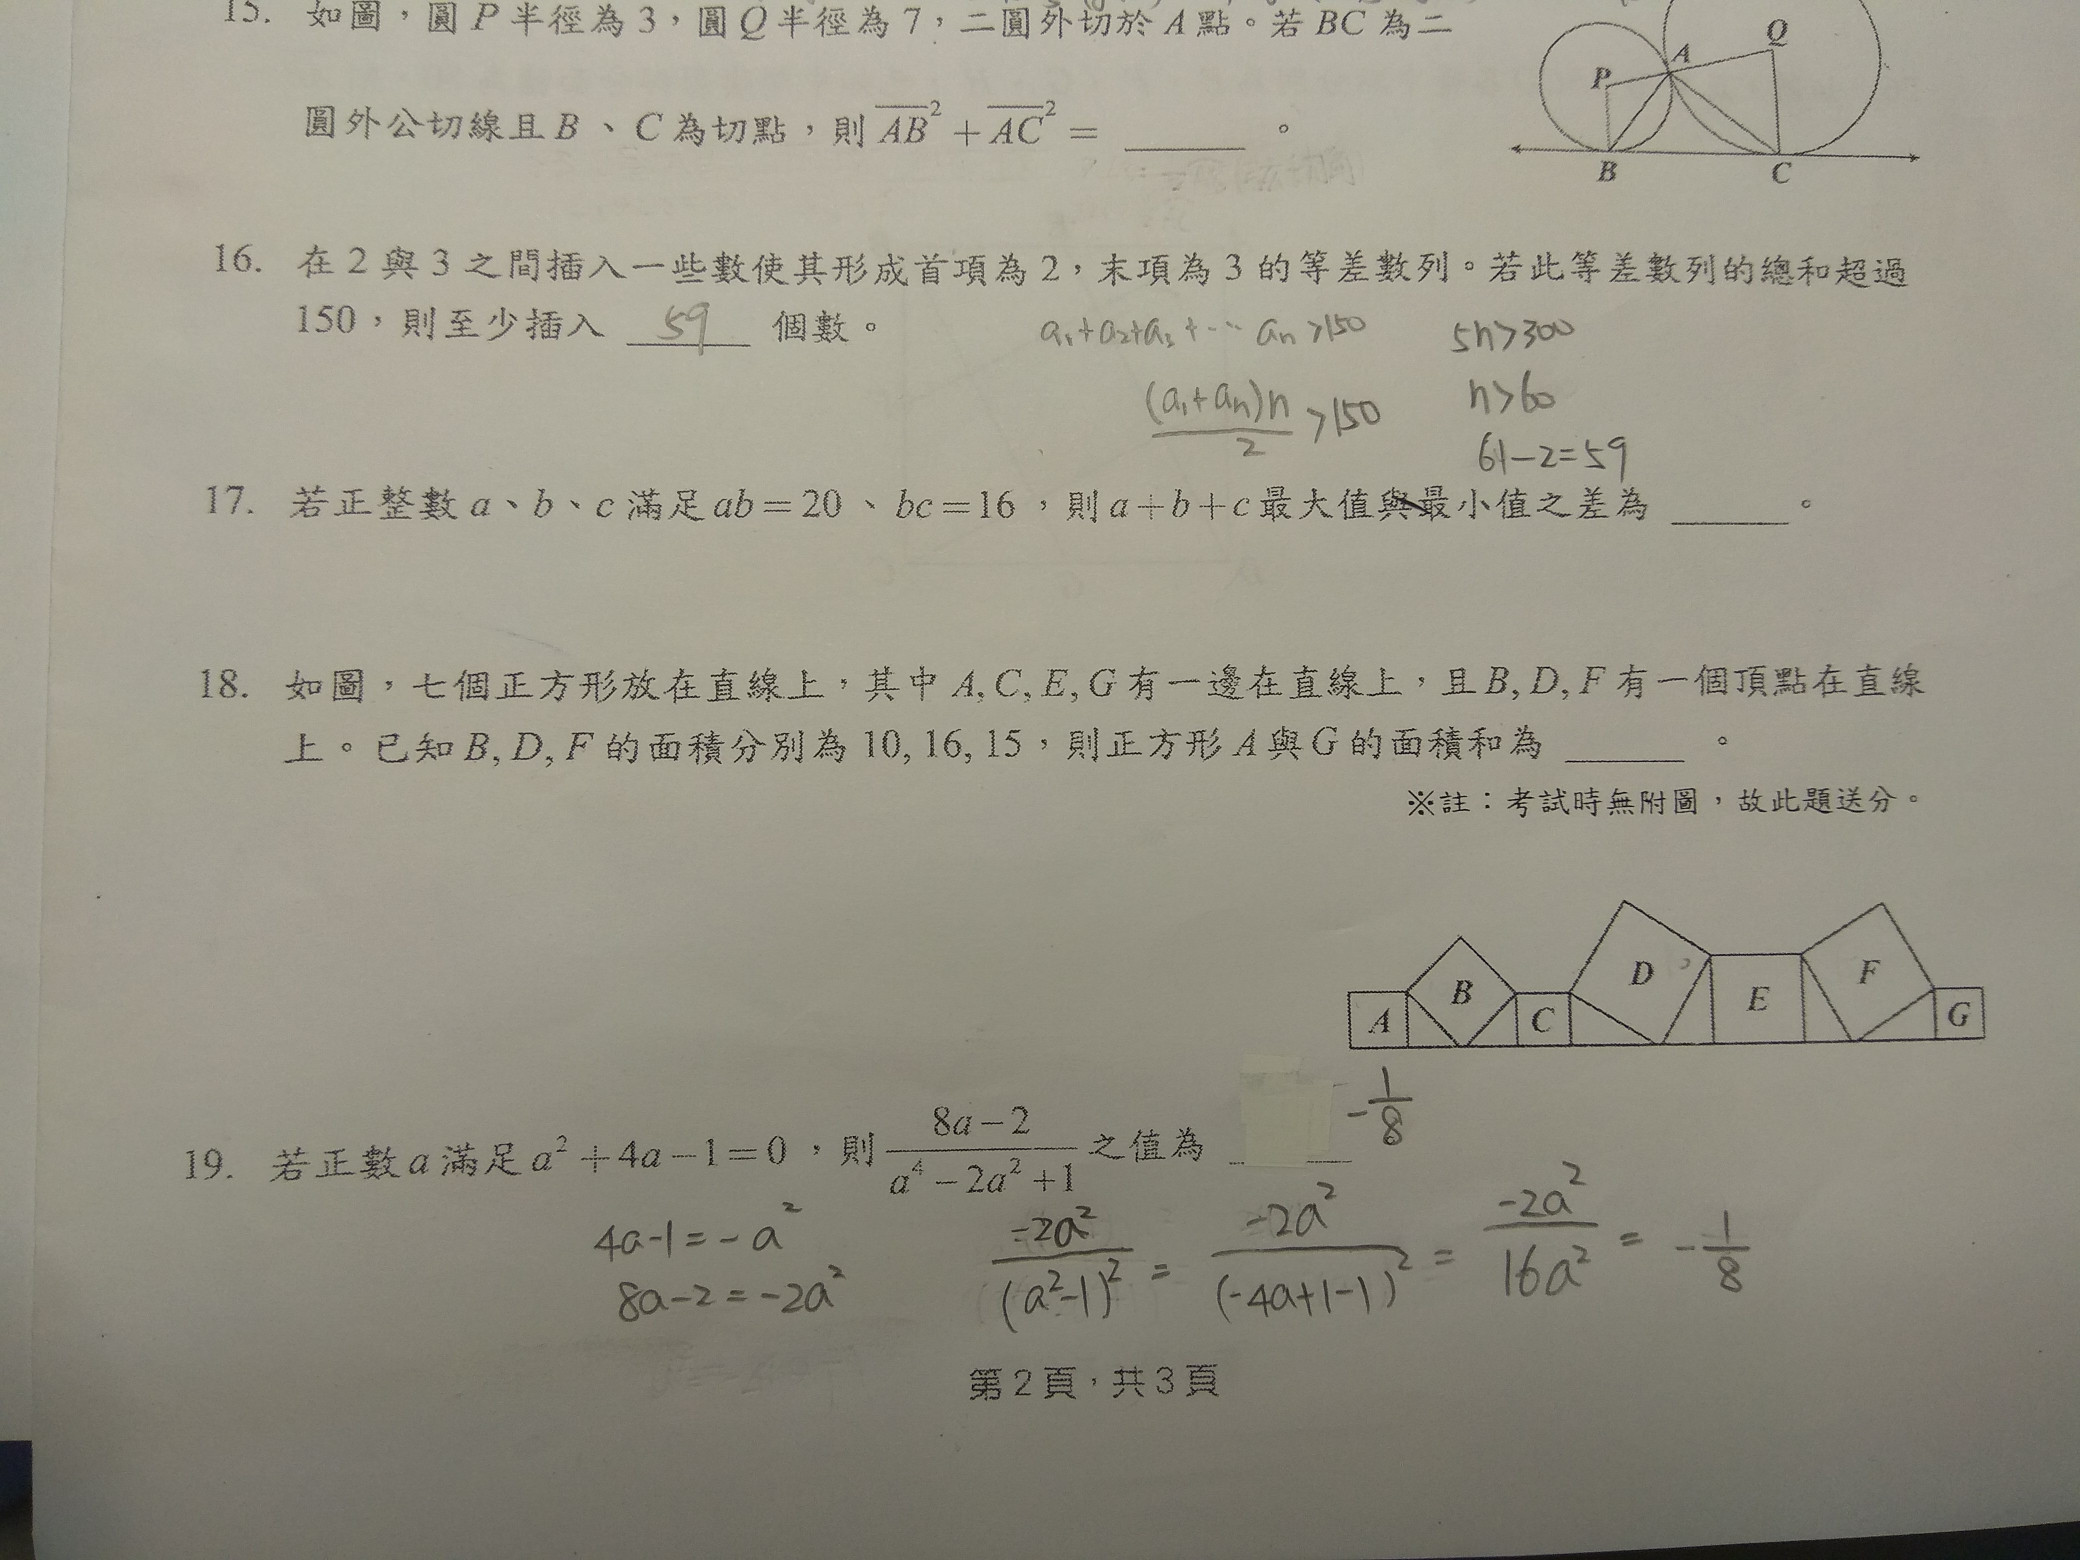 15. 如圖，圓 P 半徑為 3，圓 Q 半徑為 7，二圓外切於 A 點。若 BC 為二
圓外公切線且 B、C 為切點，則 AB² + AC² = ______ 。
P
A
Q
B
C
16. 在 2 與 3 之間插入一些數使其形成首項為 2，末項為 3 的等差數列。若此等差數列的總和超過
150，則至少插入 59 個數。
a₁+a₂+a₃+⋯ aₙ>150
(a₁+aₙ)n/2 >150
5n>300
n>60
61-2=59
17. 若正整數 a、b、c 滿足 ab=20、bc=16，則 a+b+c 最大值與最小值之差為 ______。
18. 如圖，七個正方形放在直線上，其中 A, C, E, G 有一邊在直線上，且 B, D, F 有一個頂點在直線
上。已知 B, D, F 的面積分別為 10, 16, 15，則正方形 A 與 G 的面積和為 ______ 。
※註：考試時無附圖，故此題送分。
A
B
C
D
E
F
G
19. 若正數 a 滿足 a²+4a-1=0，則 (8a-2)/(a⁴-2a²+1) 之值為 -1/8
4a-1=-a²
8a-2=-2a²
-2a²/(a²-1)² = -2a²/(-4a+1-1)² = -2a²/16a² = -1/8
第 2 頁，共 3 頁